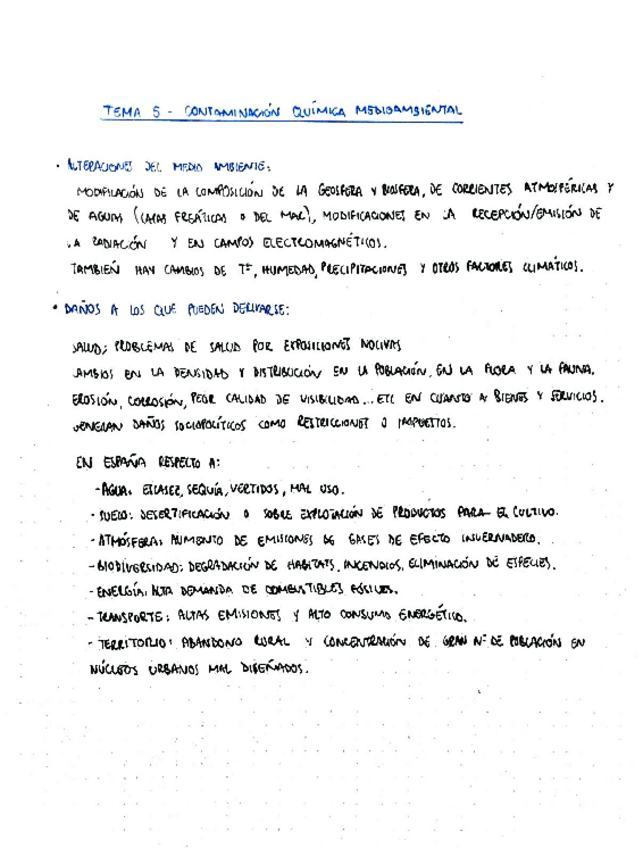 TEMA 5 - CONTAMINACIÓN QUÍMICA MEDIOAMBIENTAL
• ALTERACIONES DEL MEDIO AMBIENTE:
MODIFICACIÓN DE LA COMPOSICIÓN DE LA GEOSFERA Y BIOSFERA, DE CORRIENTES ATMOSFÉRICAS Y
DE AGUAS (CAPAS FREÁTICAS O DEL MAR), MODIFICACIONES EN LA RECEPCIÓN/EMISIÓN DE
LA RADIACIÓN Y EN CAMPOS ELECTROMAGNÉTICOS.
TAMBIÉN HAY CAMBIOS DE Tª, HUMEDAD, PRECIPITACIONES Y OTROS FACTORES CLIMÁTICOS.
• DAÑOS A LOS QUE PUEDEN DERIVARSE:
SALUD; PROBLEMAS DE SALUD POR EXPOSICIONES NOCIVAS
AMBIOS EN LA DENSIDAD Y DISTRIBUCIÓN EN LA POBLACIÓN, EN LA FLORA Y LA FAUNA.
EROSIÓN, CORROSIÓN, PEOR CALIDAD DE VISIBILIDAD... ETC EN CUANTO A BIENES Y SERVICIOS.
DAÑOS SOCIOPOLÍTICOS COMO RESTRICCIONES O IMPUESTOS.
EN ESPAÑA RESPECTO A:
- AGUA: ESCASEZ, SEQUÍA, VERTIDOS, MAL USO.
- SUELO: DESERTIFICACIÓN O SOBRE EXPLOTACIÓN DE PRODUCTOS PARA EL CULTIVO.
- ATMÓSFERA: AUMENTO DE EMISIONES DE GASES DE EFECTO INVERNADERO.
- BIODIVERSIDAD: DEGRADACIÓN DE HABITATS, INCENDIOS, ELIMINACIÓN DE ESPECIES.
- ENERGÍA: ALTA DEMANDA DE COMBUSTIBLES FÓSILES.
- TRANSPORTE: ALTAS EMISIONES Y ALTO CONSUMO ENERGÉTICO.
- TERRITORIO: ABANDONO RURAL Y CONCENTRACIÓN DE GRAN Nº DE POBLACIÓN EN
NÚCLEOS URBANOS MAL DISEÑADOS.